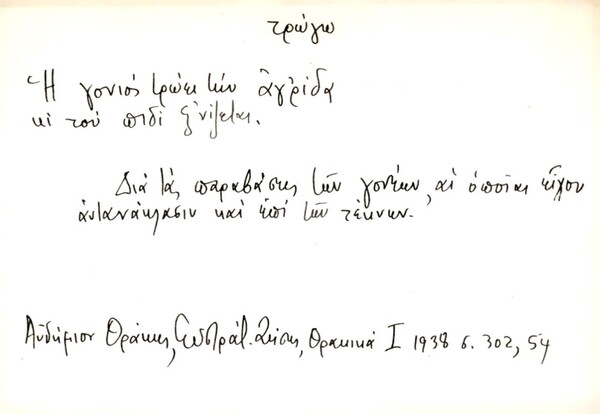 τρώγω
Ἡ γονιός τρώει τήν ἀγρίδα
κι τοῦ πιδί ξ'νίζεται.
Διά τάς παραβάσεις τῶν γονέων, αἱ ὁποῖαι εἶχον
ἀντανάκλασιν καί ἐπί τῶν τέκνων.
Αὐδήμιον Θράκης, Εὐστράτ. Ζήσης, Θρακικά I 1938 σ. 302, 54